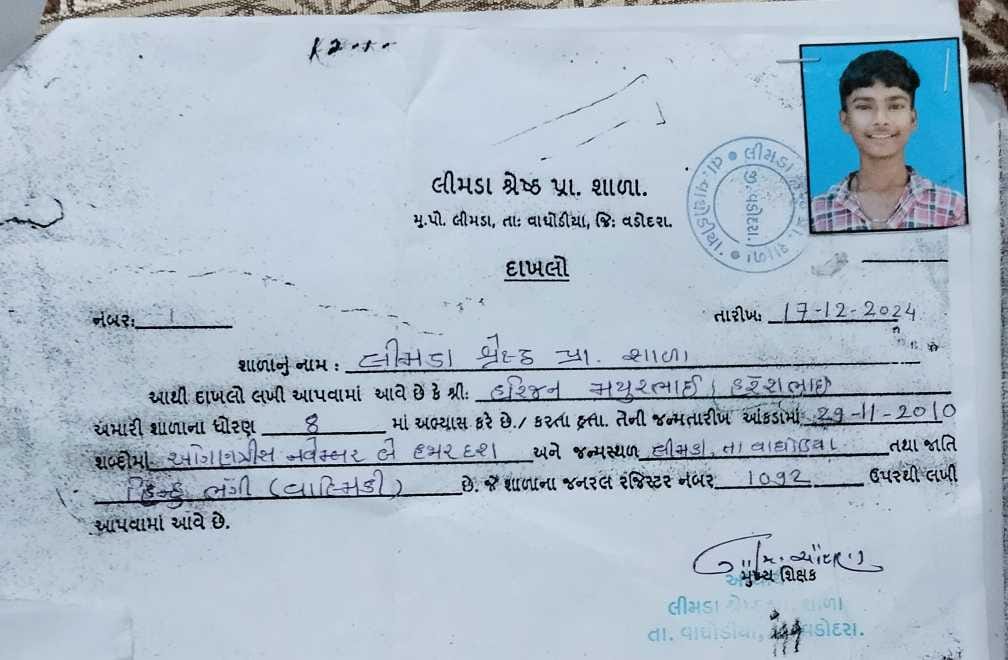 લીમડા શ્રેષ્ઠ પ્રા. શાળા.
મુ.પો. લીમડા, તાઃ વાઘોડીયા, જિઃ વડોદરા.
દાખલો
નંબરઃ 1
તારીખઃ 17-12-2024
શાળાનું નામ : લીમડા શ્રેષ્ઠ પ્રા. શાળા
આથી દાખલો લખી આપવામાં આવે છે કે શ્રીઃ હરિજન મયુરભાઈ હરેશભાઈ
અમારી શાળાના ધોરણ 8 માં અભ્યાસ કરે છે./ કરતા હતા. તેની જન્મતારીખ આંકડામાં 29-11-2010
શબ્દોમાં ઓગણત્રીસ નવેમ્બર બે હજાર દશ અને જન્મસ્થળ લીમડા, તા વાઘોડિયા તથા જાતિ
હિન્દુ ભંગી (વાલ્મિકી) છે. જે શાળાના જનરલ રજિસ્ટર નંબર 1092 ઉપરથી લખી
આપવામાં આવે છે.
મુખ્ય શિક્ષક
લીમડા શાળા
તા. વાઘોડીયા, વડોદરા.